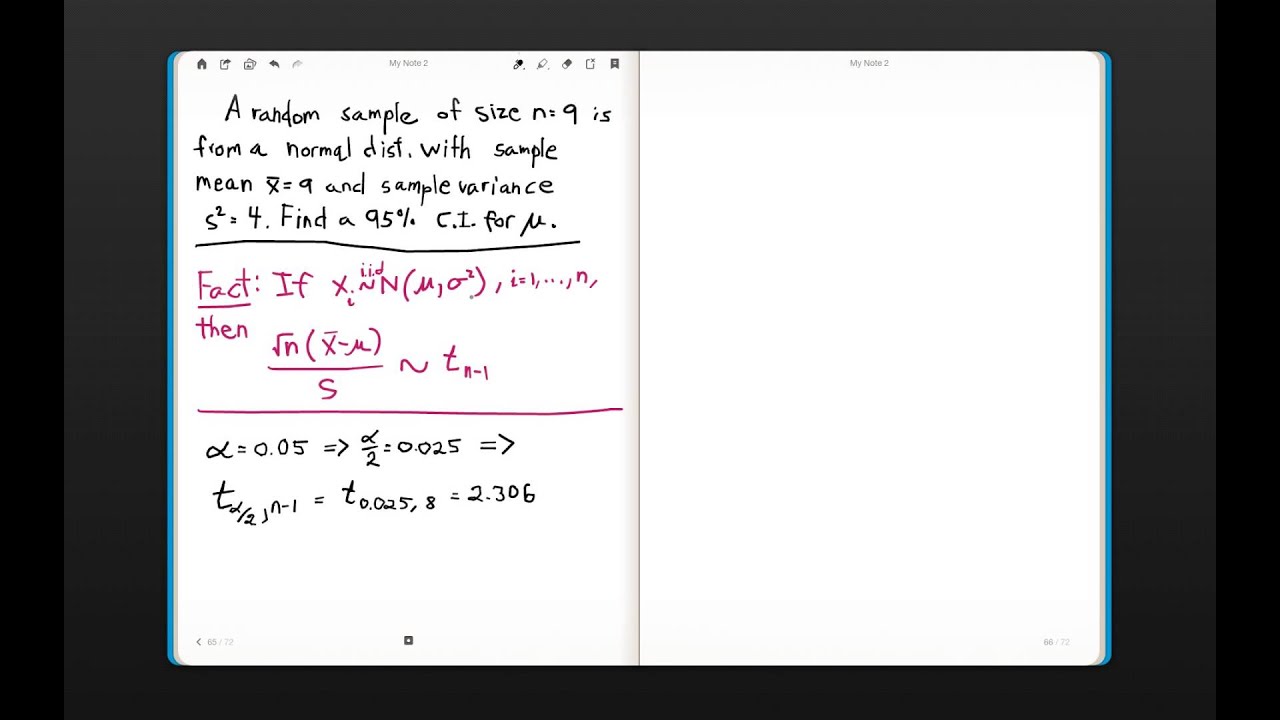 My Note 2
A random sample of size n=9 is
from a normal dist. with sample
mean x̄=9 and sample variance
s²=4. Find a 95% C.I. for μ.
Fact: If Xᵢ i.i.d ~ N(μ,σ²), i=1,...,n,
then
√n(x̄-μ)
S
~ tₙ₋₁
α=0.05 => α/2=0.025 =>
t_α/2,n-1 = t_0.025,8 = 2.306
65 / 72
My Note 2
66 / 72